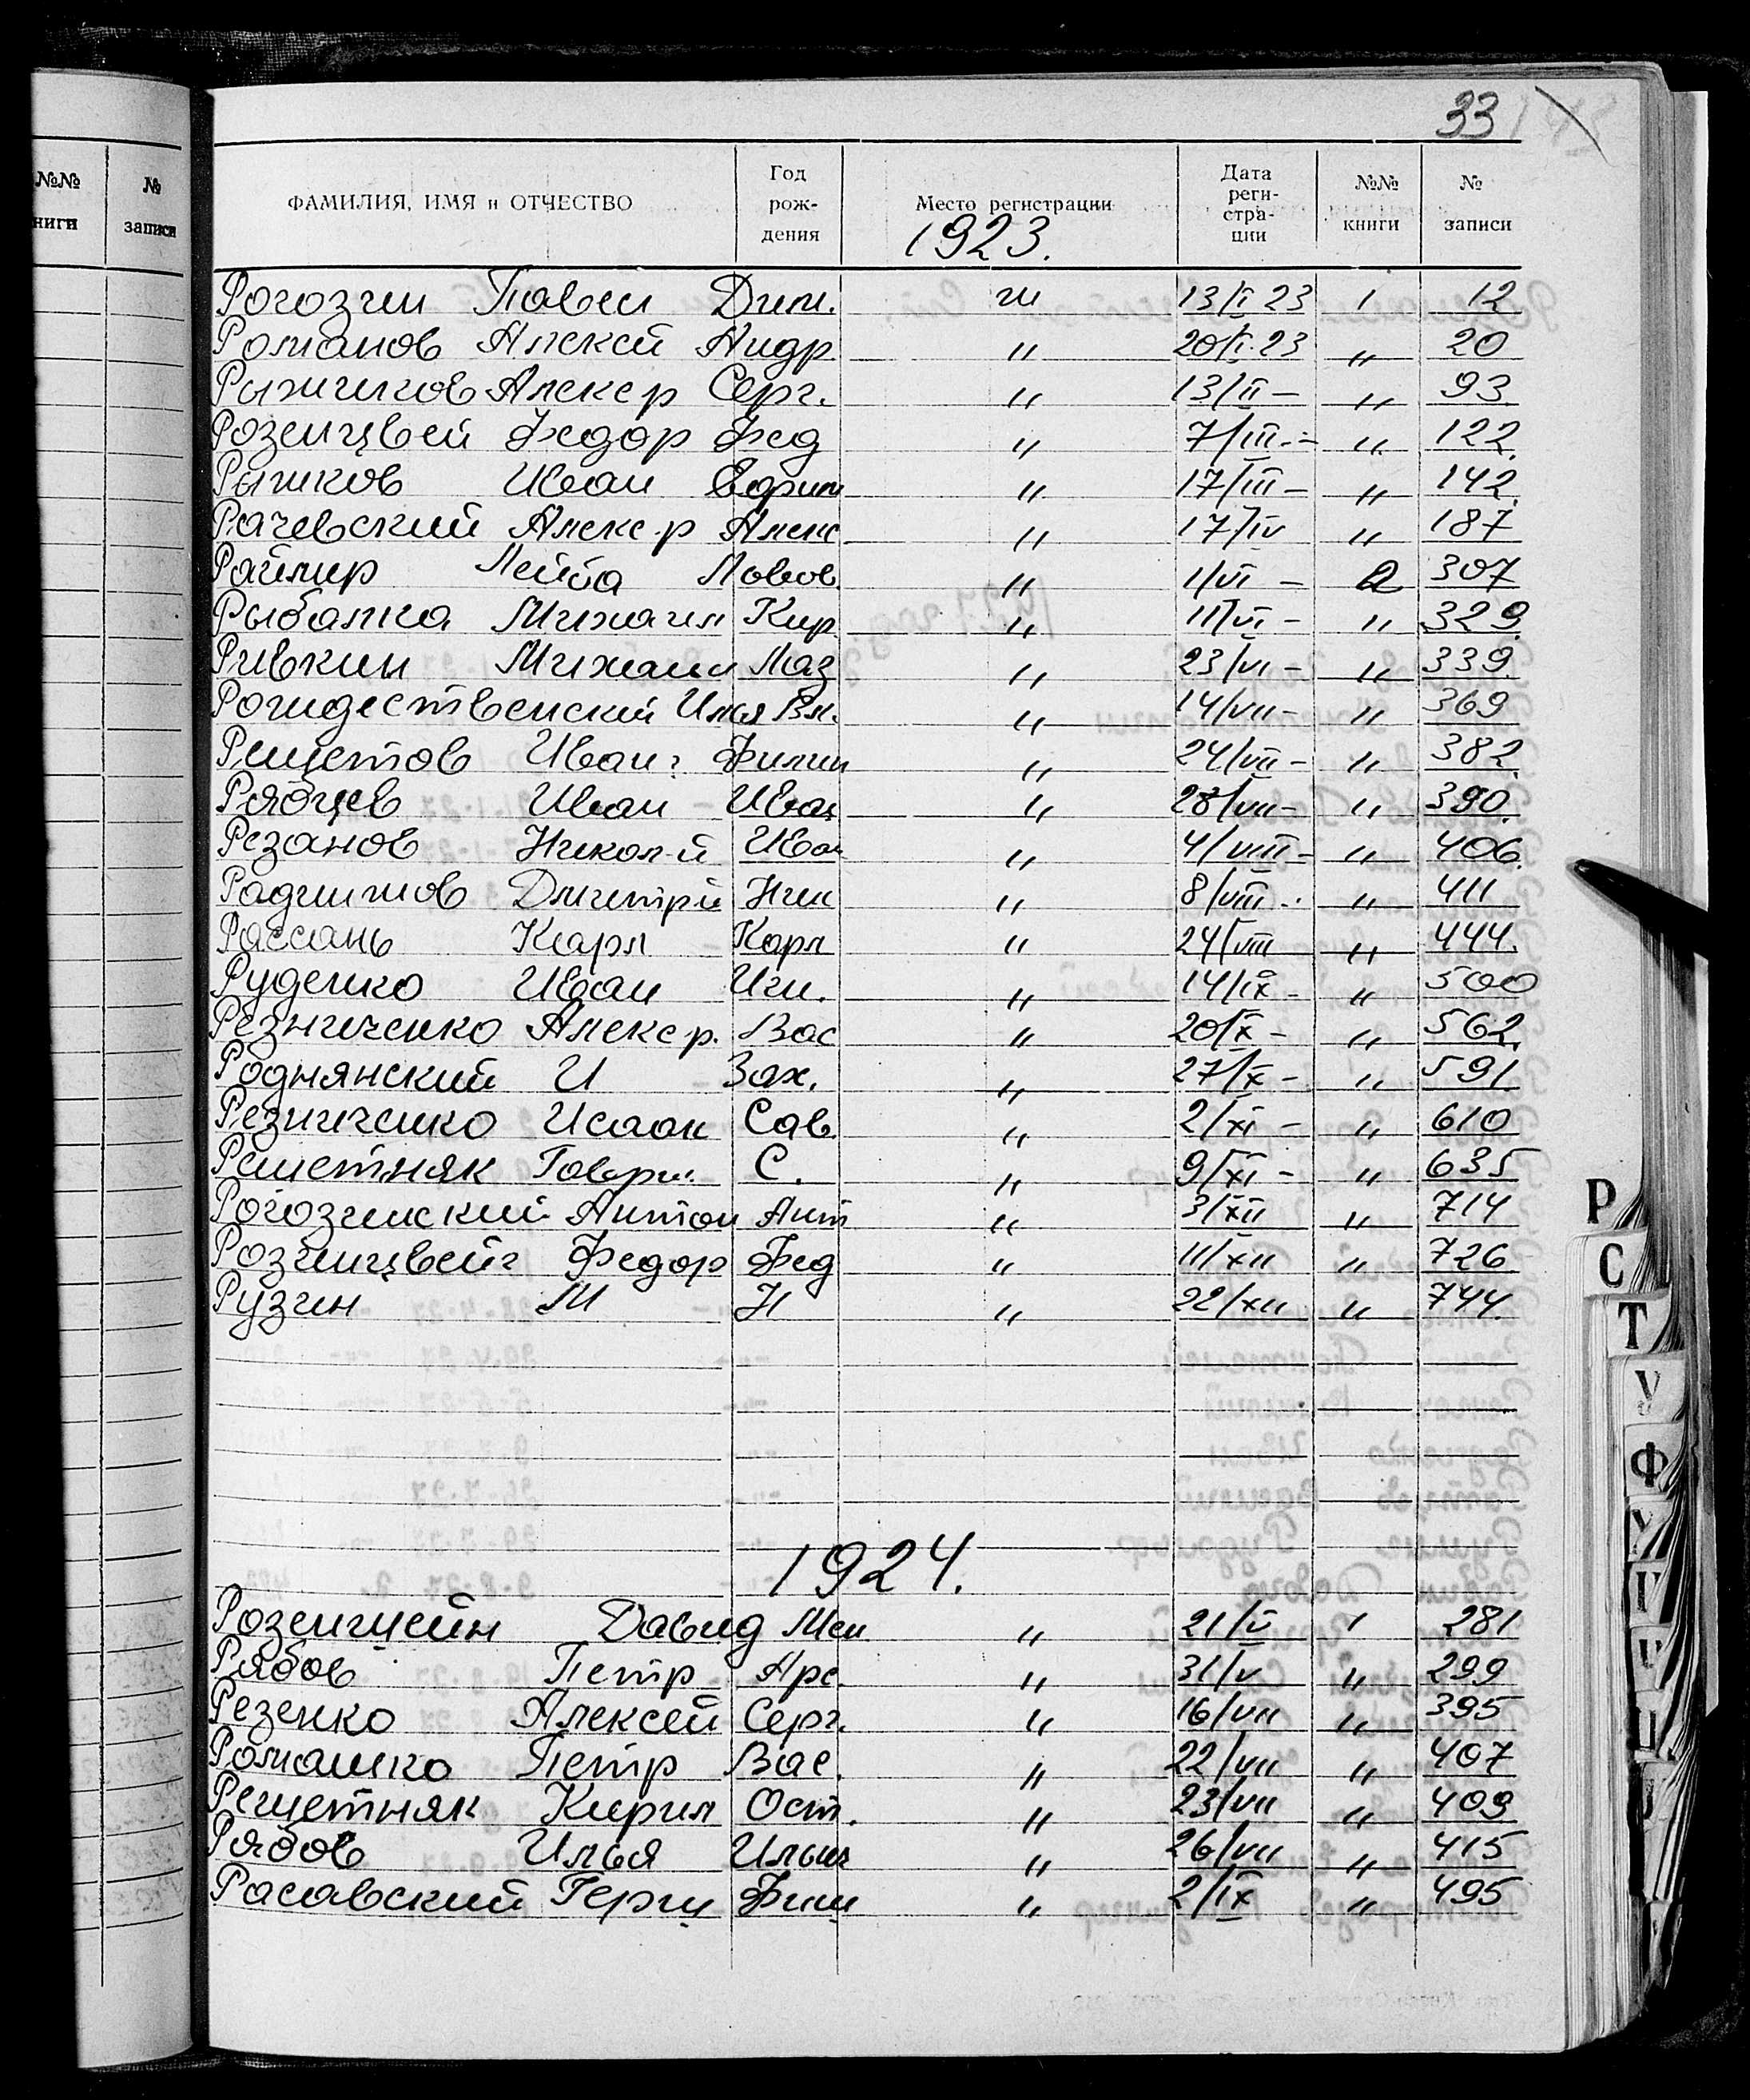 33
№№ книги № записи
ФАМИЛИЯ, ИМЯ и ОТЧЕСТВО Год рож- дения Место регистрации Дата реги- стра- ции №№ книги № записи
1923.
Рогозин Павел Дим. 13/I 23 1 12
Романов Алексей Андр. " 20/I.23 " 20
Рыжиков Алекс р Серг. " 13/II – " 93
Розенцвей Федор Фед " 7/III – " 122
Рыжков Иван " 17/III – " 142
Рачевский Алекс р Алекс " 17/IV " 187
Лейба " 1/VI – 2 307
Рыбалка Михаил Кир " 11/VI – " 329
Ривкин Михаил Лаз " 23/VI – " 339
Рождественский Илья Вл. " 14/VII – " 369
Решетов Иван Филип " 24/VII – " 382
Рябцев Иван Иван " 28/VII – " 390
Резанов Никол-й Иван " 4/VIII – " 406
Дмитрий Ник " 8/VIII " 411
Рассань Карл Карл " 24/VIII " 444
Руденко Иван Игн. " 14/IX – " 500
Резниченко Алекс р. Вас " 20/X – " 562
Роднянский И Зах. " 27/X – " 591
Резниченко Исаак Сав. " 2/XI – " 610
Решетняк Гаври. С. " 9/XI – " 635
Рогозинский Антон Ант " 3/XII " 714
Розинцвейг Федор Фед " 11/XII " 726
Рузин М Н " 22/XII " 744
1924.
Розенштейн Давид Мен " 21/V 1 281
Рябов Петр Арс. " 31/V " 299
Резенко Алексей Серг. " 16/VII " 395
Ромашко Петр Вас. " 22/VII " 407
Решетняк Кирил Ост. " 23/VII " 409
Рябов Илья Ильич " 26/VII " 415
Расавский Герш Фиш " 2/IX " 495
Р
С
Т
У
Ф